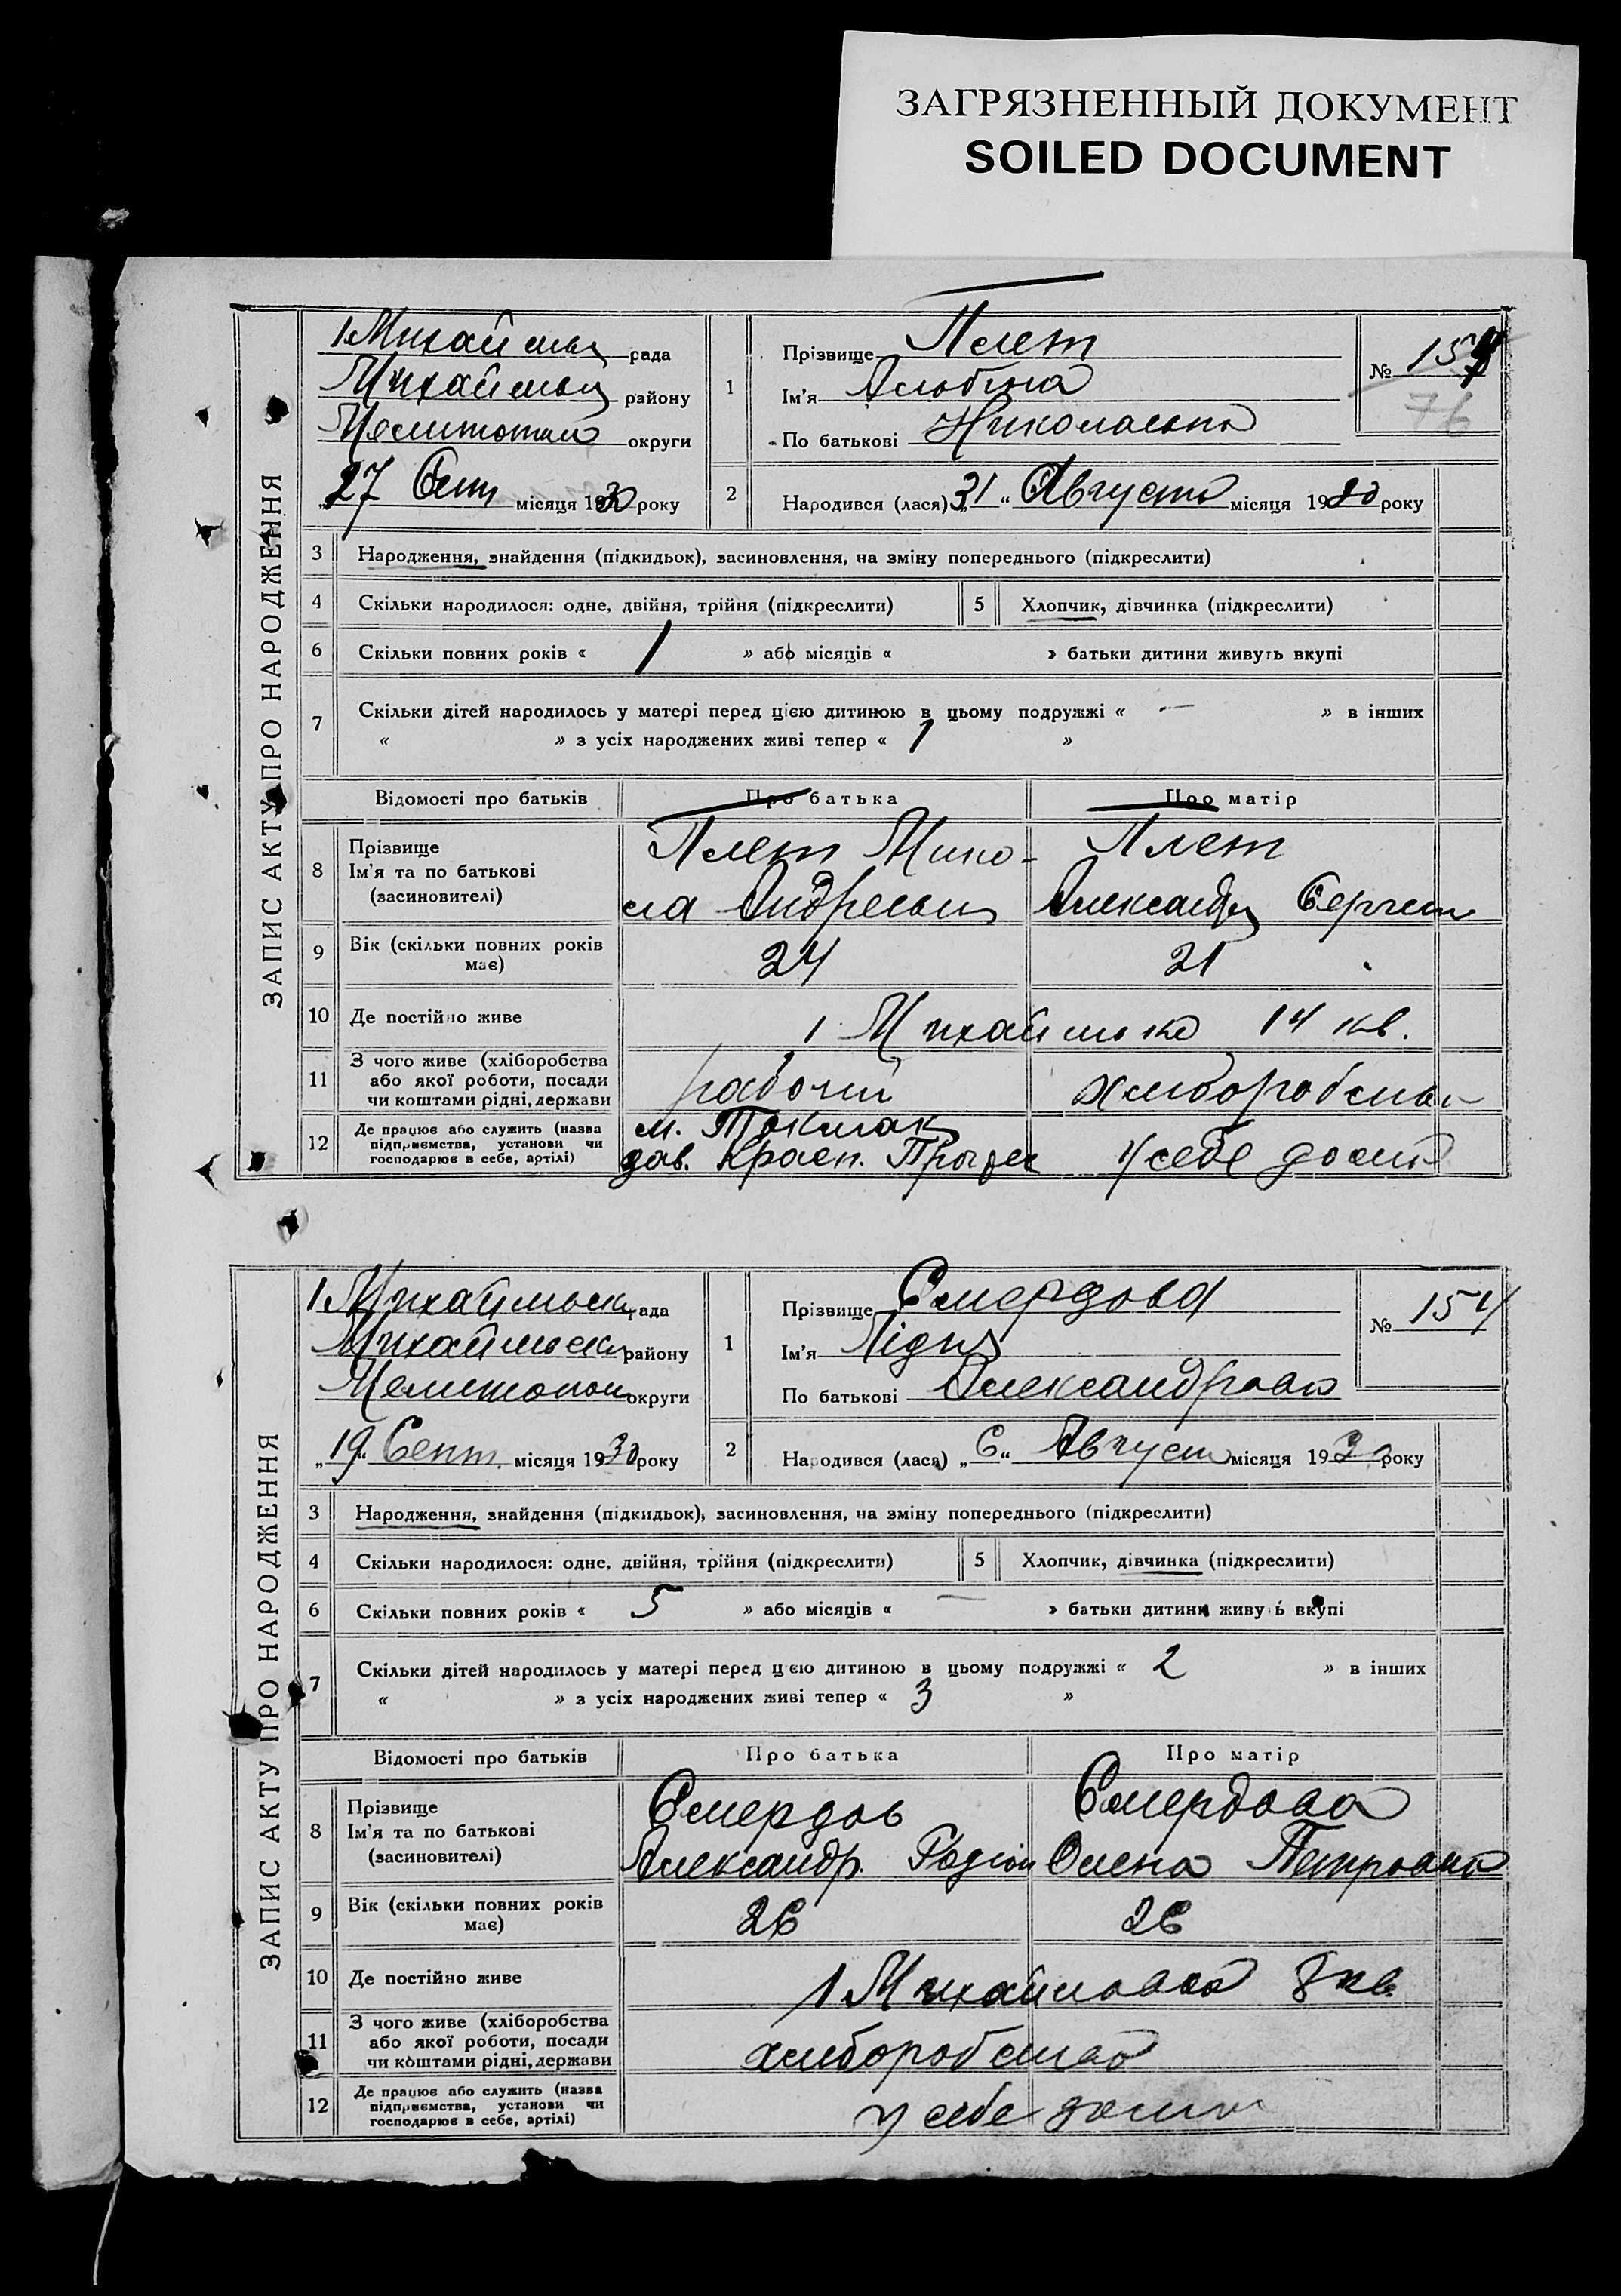 ЗАГРЯЗНЕННЫЙ ДОКУМЕНТ
SOILED DOCUMENT
ЗАПИС АКТУ ПРО НАРОДЖЕННЯ
рада
району
округи
27 Сент місяця 1930 року
1
Прізвище Плет
Ім'я
По батькові
№
76
2
Народився (лася) 31 " Августа місяця 19 року
3
Народження, знайдення (підкидьок), засиновлення, на зміну попереднього (підкреслити)
4
Скільки народилося: одне, двійня, трійня (підкреслити)
5
Хлопчик, дівчинка (підкреслити)
6
Скільки повних років « 1 » або місяців « » батьки дитини живуть вкупі
7
Скільки дітей народилось у матері перед цією дитиною в цьому подружжі « — » в інших
« » з усіх народжених живі тепер « 1 »
Відомості про батьків
Про батька
Про матір
8
Прізвище
Ім'я та по батькові
(засновителі)
Плет Мико-
ла
Плет
9
Вік (скільки повних років
має)
24
21
10
Де постійно живе
1 14 кв.
11
З чого живе (хліборобства
або якої роботи, посади
чи коштами рідні, держави
рабочий
12
Де працює або служить (назва
підприємства, установи чи
господарює в себе, артілі)
м. Токмак
зав. Красн. Прогрес
у себе дома
ЗАПИС АКТУ ПРО НАРОДЖЕННЯ
рада
району
округи
„19" Сент. місяця 1930 року
1
Прізвище Смердова
Ім'я Лідия
По батькові
№ 154
2
Народився (лася) „6" Август місяця 1930 року
3
Народження, знайдення (підкидьок), засиновлення, на зміну попереднього (підкреслити)
4
Скільки народилося: одне, двійня, трійня (підкреслити)
5
Хлопчик, дівчинка (підкреслити)
6
Скільки повних років « 5 » або місяців « — » батьки дитини живуть вкупі
7
Скільки дітей народилось у матері перед цією дитиною в цьому подружжі « 2 » в інших
« » з усіх народжених живі тепер « 3 »
Відомості про батьків
Про батька
Про матір
8
Прізвище
Ім'я та по батькові
(засиновителі)
Смердов
Александр. Родіон
Смердова
Олена Петровна
9
Вік (скільки повних років
має)
26
26
10
Де постійно живе
1 Михайловка 8 кв
11
З чого живе (хліборобства
або якої роботи, посади
чи коштами рідні, держави
хліборобство
12
Де працює або служить (назва
підприємства, установи чи
господарює в себе, артілі)
у себе дома